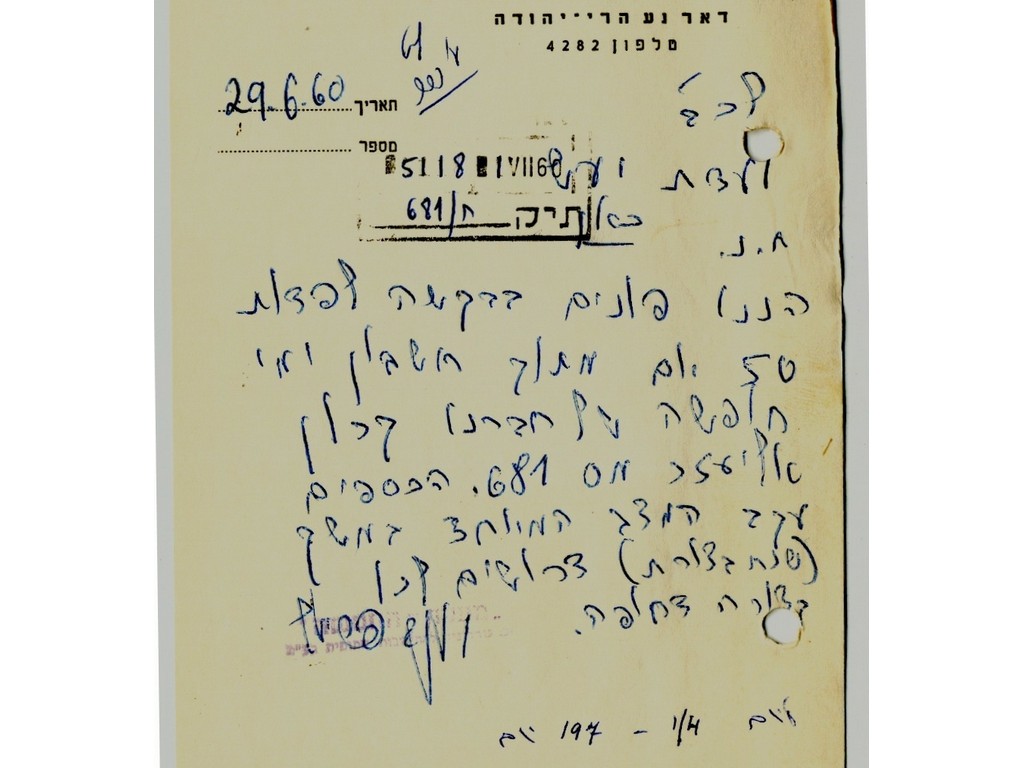 דאר נע הרי־יהודה
טלפון 4282
תאריך 29.6.60
מספר
לכב'
ועדת
5118 1 VII 60
תיק ח/681
א.נ.
הננו פונים בבקשה לפדות
יום מתוך חשבון ימי
חופשה של חברנו קרלין
אליעזר מס 681. הכספים
עקב המצב המיוחד במשק
(שנת בצורת) דרושים לנו
בצורה דחופה.
1/4 - 197 יום